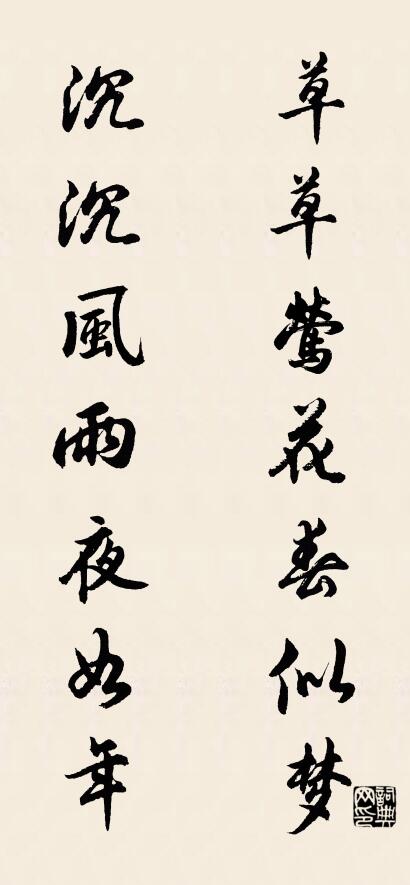 草草鶯花春似梦
沉沉風雨夜如年
詞典网印